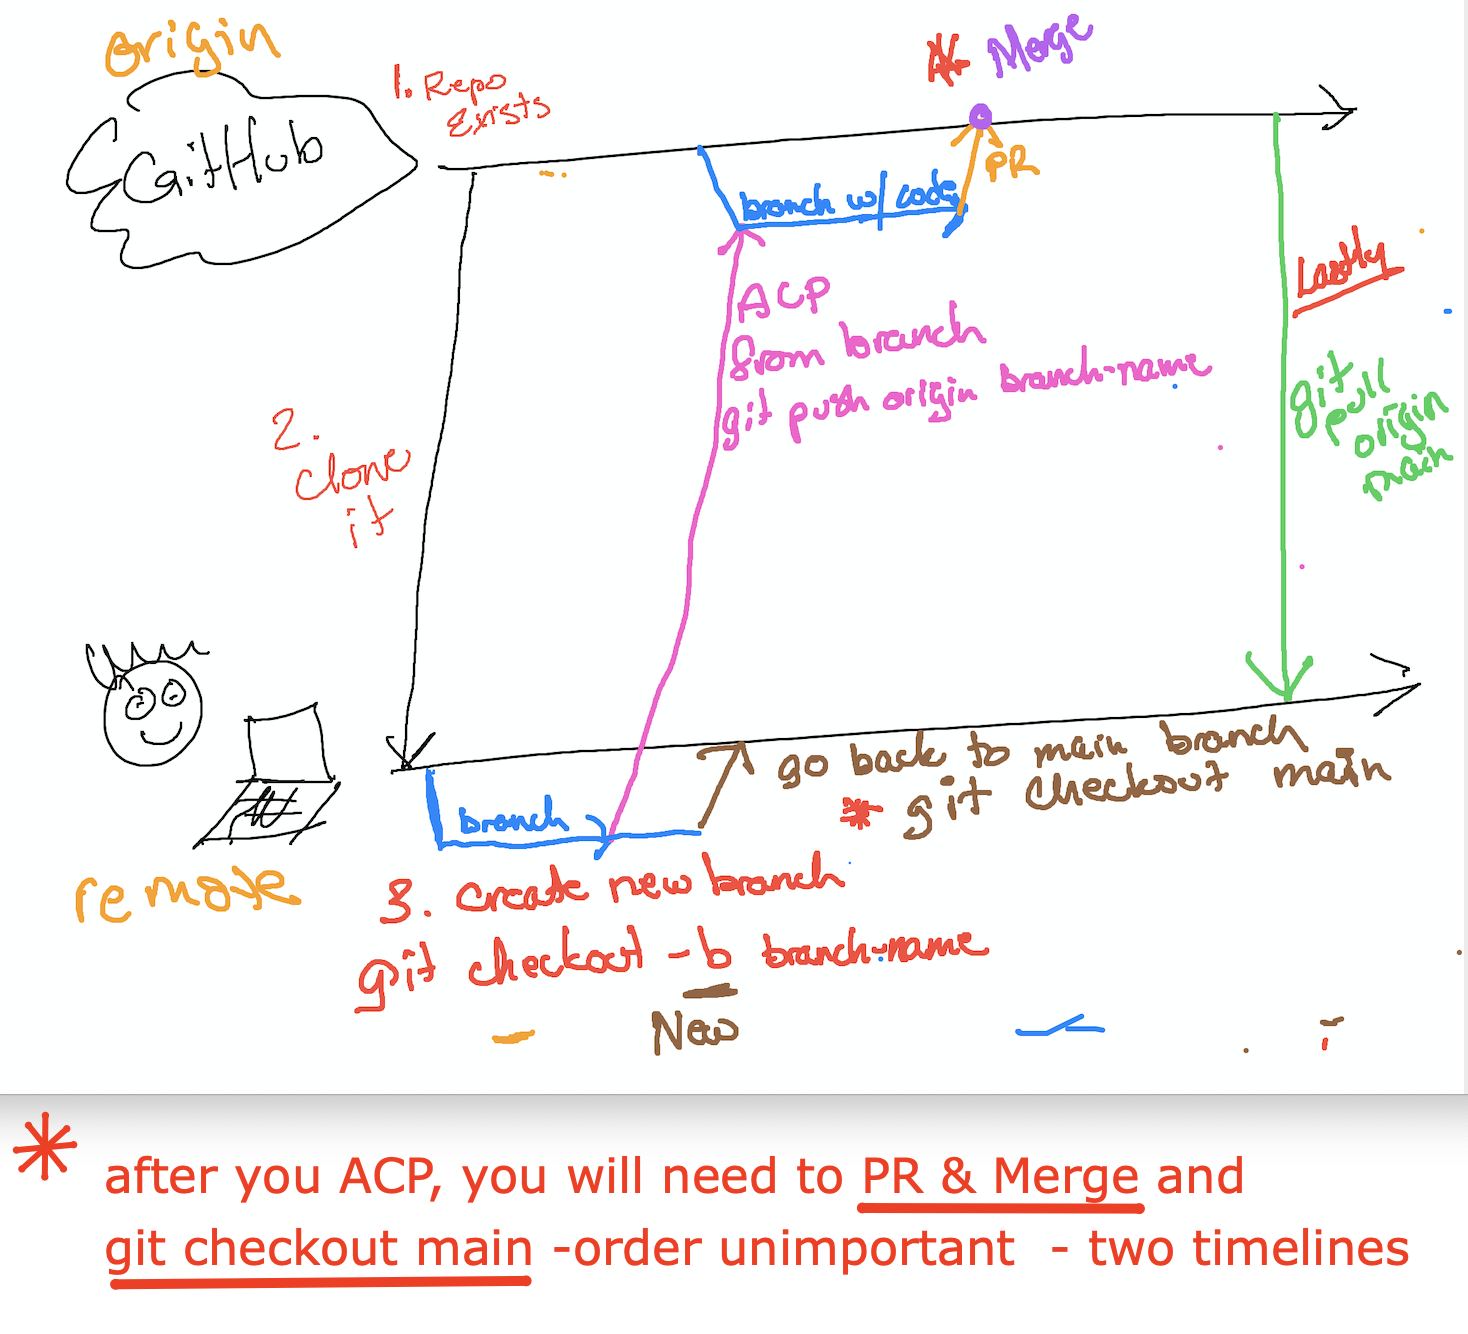 origin
GitHub
1. Repo
Exists
* Merge
PR
branch w/ code
ACP
from branch
git push origin branch-name
Lastly
git
pull
origin
main
2.
Clone
it
go back to main branch
* git checkout main
branch
remote
3. create new branch
git checkout -b branch-name
New
* after you ACP, you will need to PR & Merge and
git checkout main -order unimportant - two timelines